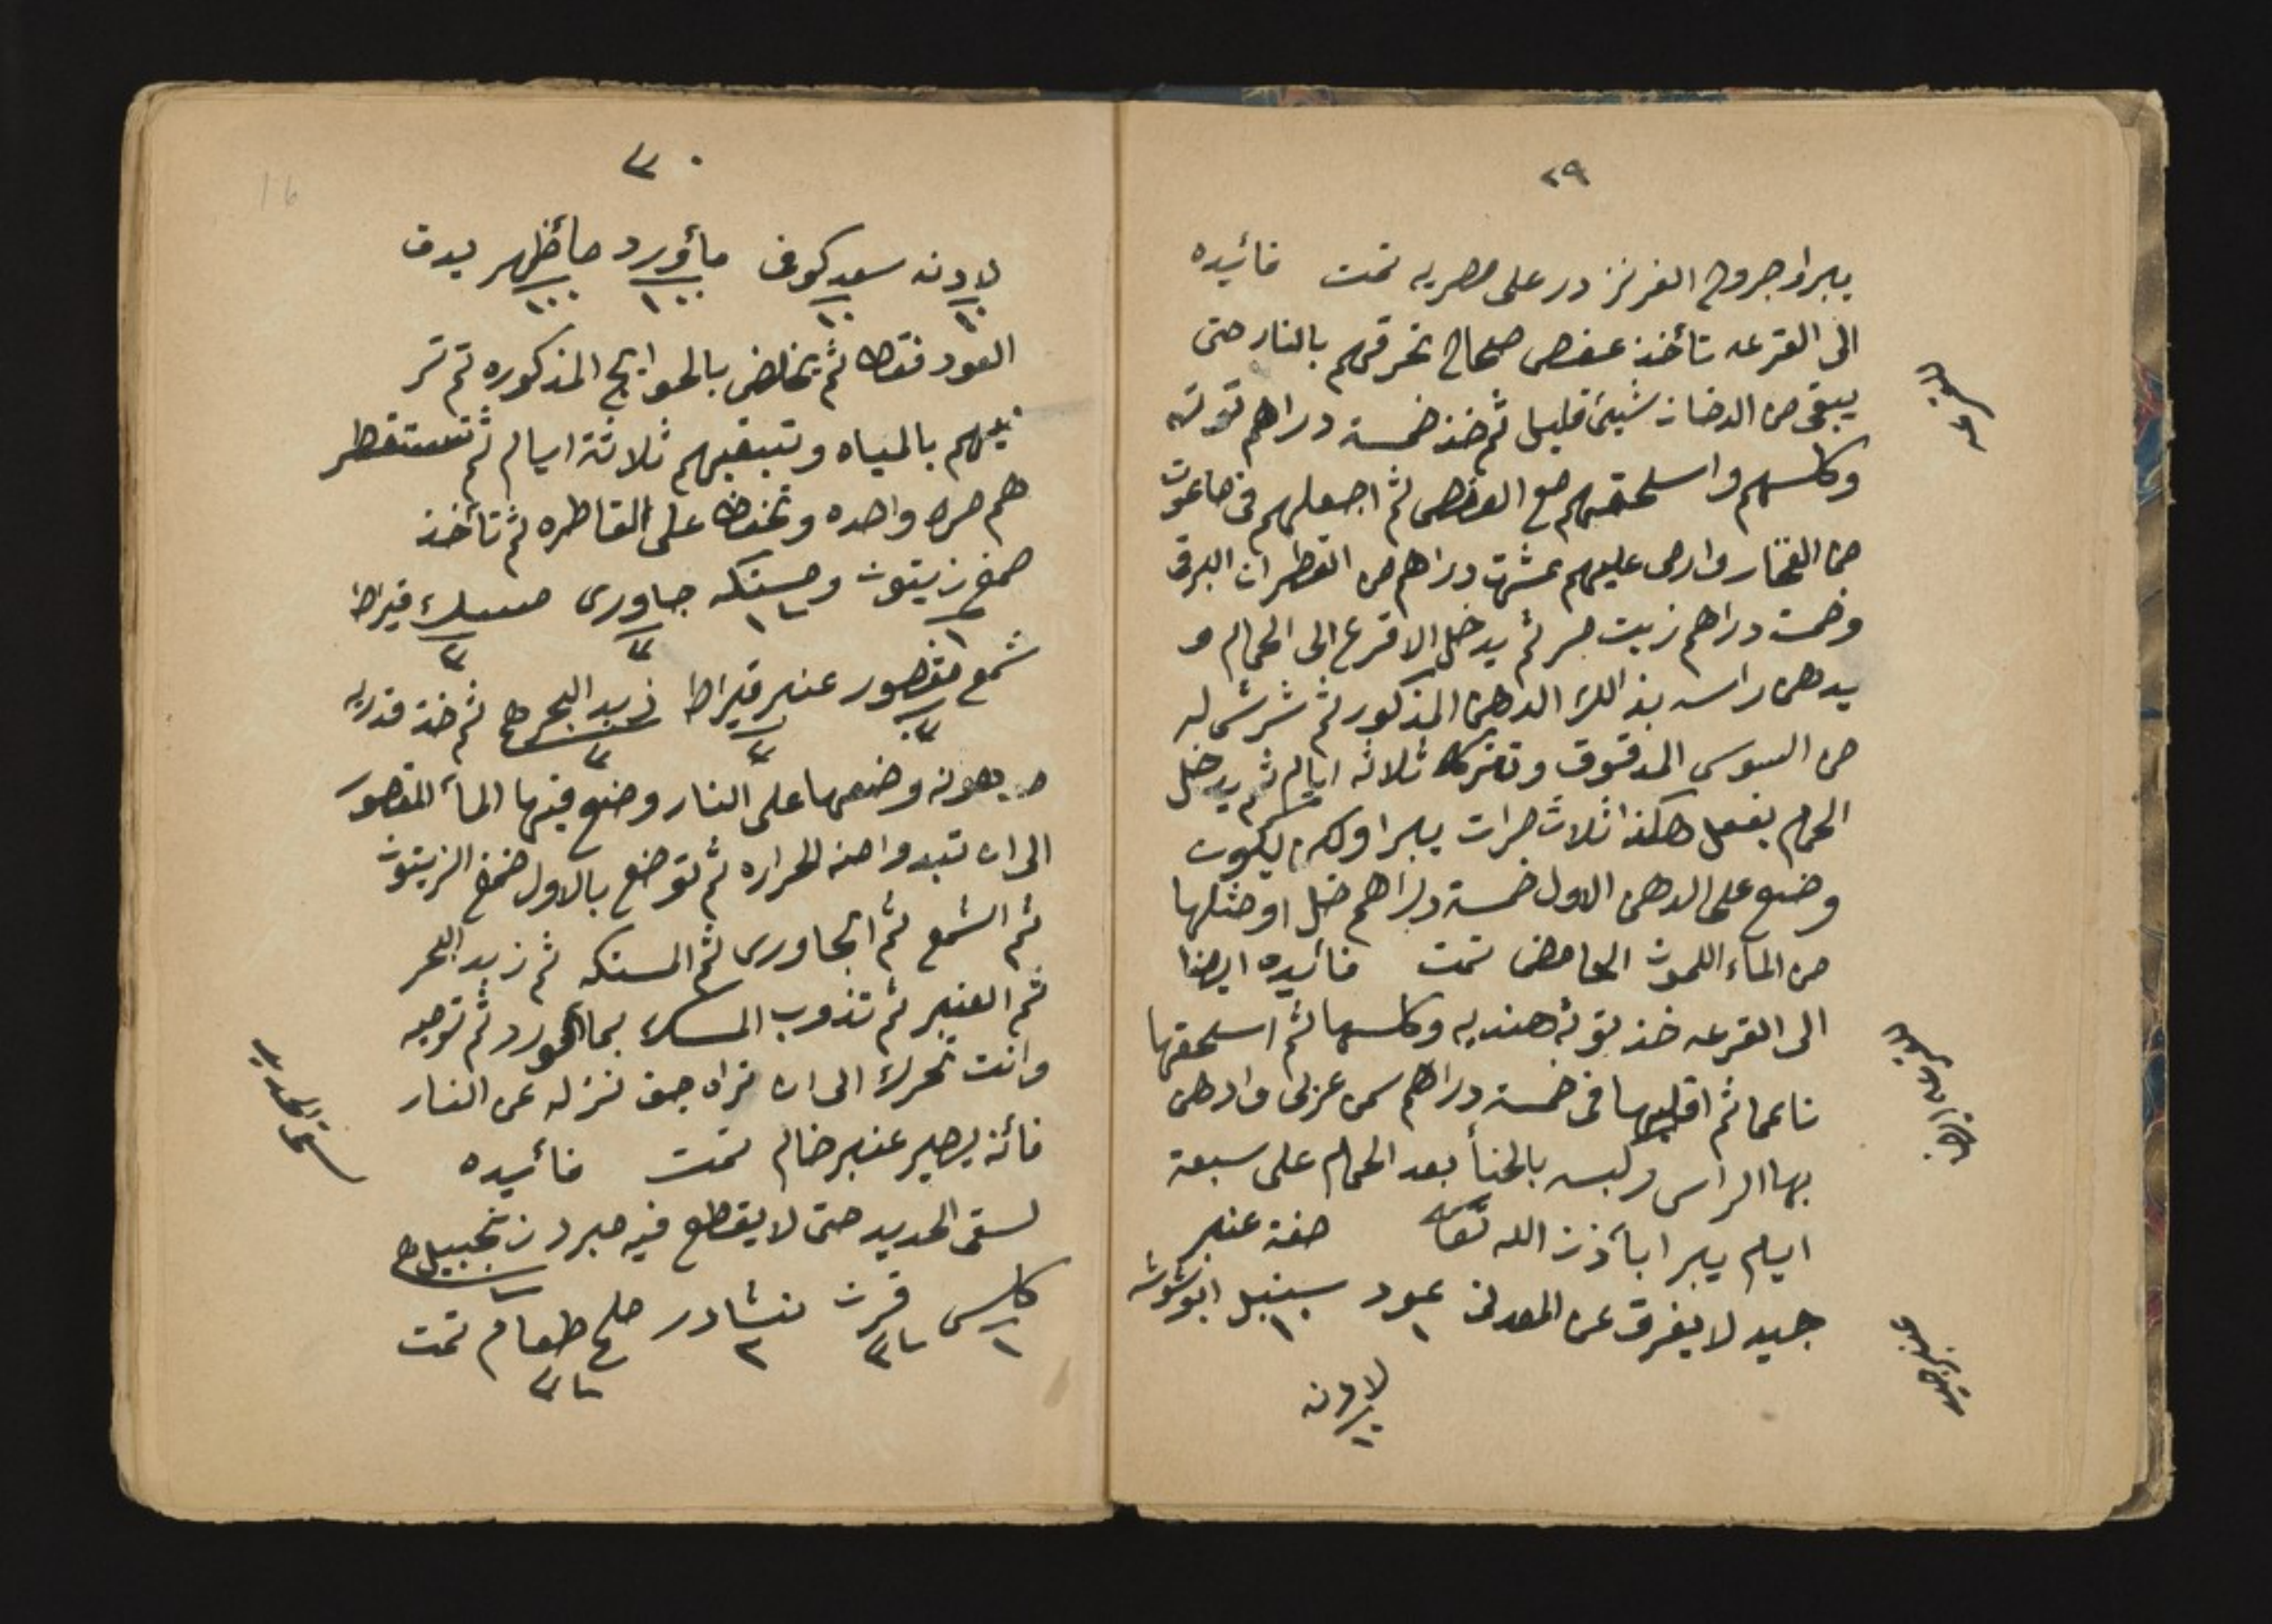 ٢٩
يبراو جروح الفرنز در على مصريه تمت فائيده
الى القرعه تأخذ عفص صحاح تحرقهم بالنار حتى
يبقى من الدخان شيئ قليل ثم خذ خمسة دراهم توته
وكلسهم واسلحقهم مع العفص ثم اجعلهم في ماعون
من الفخار وارمى عليهم عشرت دراهم من القطران البرقى
وخمسة دراهم زيت ثم يدخل الاقرع الى الحمام و
يدهن راسه بذالك الدهن المذكور ثم شرش له
من السوس المدقوق وتتركه ثلاثه ايام ثم يدخل
الحمام يفعل هكذا ثلاث مرات يبرا ولكن يكون
وضع على الدهن الاول خمسة دراهم خل او مثلها
من الماء اللمون الحامض تمت فائيده ايضا
الى القرعه خذ توته هنديه وكلسها ثم اسلحقها
ناعما ثم اقليها في خمسة دراهم سمن عربى وادهن
بها الراس ولبسه بالحنأ بعد الحمام على سبعة
ايام يبرا بأذن الله تعا صفة عنبر
جيد لا يفرق عن المعدنى عود سنبل ابوشوشه
١ ١٠
لادنه
١٠
للقرعه
للقرعه ايضا
صفة عنبر
٣٠
لادنه سعد كوفى مأورد مأظهر يدق
١٠ ١٠ ١٠٠ ١٠٠
العود فقط ثم يخلض بالحوايج المذكوره ثم تر
بيهم بالمياه وتبقيهم ثلاثة ايام ثم تستقطر
هم مره واحده وتحفظ على القاطره ثم تأخذ
صمغ زيتون ومستكه جاورى مسك قيراط
شمع مقصور عنبر قيراط زبد البحر هم ثم خذ قدريه
مدهونه وضعها على النار وضع فيها المأ المقصور
الى ان تبدوا منه الحراره ثم توضع بالاول ضمغ الزيتون
ثم الشمع ثم الجاورى ثم المستكه ثم زبد البحر
ثم العنبر ثم تذوب المسك بمأ الورد ثم ترميه
وانت تحرك الى ان تراه جف نزله عن النار
فأنه يصير عنبر خام تمت فائيده
لسقى الحديد حتى لا يقطع فيه مبرد زنجبيل هم
كلس قرن نشادر ملح طعام تمت
لسقى الحديد
16